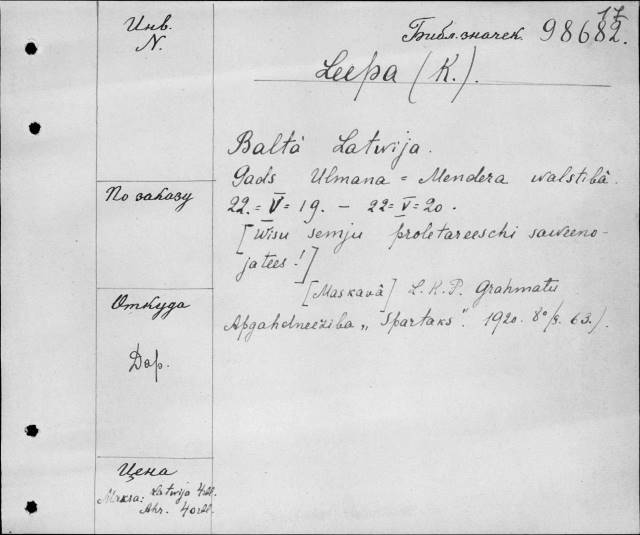 Инв.
N.
Библ. значек. 98682.
17
Leepa (K.).
Baltā Latwija.
Gads Ulmana = Mendera walstibâ.
22.=V=19. – 22=V=20.
[Wisu semju proletareeschi saweeno-
jatees!]
[Maskavâ] L.K.P. Grahmatu
Apgahdneeziba „Spartaks". 1920. 8°/s. 63.).
По заказу
Откуда
Дар.
Цена
Maksa: Latwija 4 rbl.
Ahr. 40 rbl.